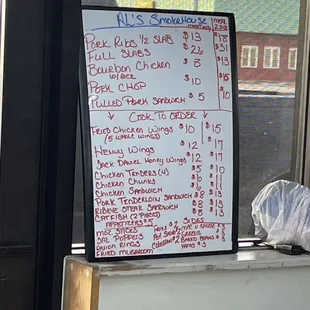 AL'S SMOKEHOUSE MEAT ONLY MEAL 2 SIDE
PORK RIBS 1/2 SLAB $13 $18
FULL SLABS $26 $31
BOURBON CHICKEN $8 $13
W/ RICE
PORK CHOP $10 $15
PULLED PORK SANDWICH $5 $10
COOK TO ORDER
FRIED CHICKEN WINGS $10 $15
(5 WHOLE WINGS)
HENNY WINGS $12 $17
JACK DANIEL HONEY WINGS $12 $17
CHICKEN TENDERS (4) $5 $10
CHICKEN CHUNKS $6 $11
CHICKEN SANDWICH
PORK TENDERLOIN SANDWICH $8 $13
RIBEYE STEAK SANDWICH $8 $13
CATFISH (2 PIECES) $8 $13
APPETIZERS $5 SIDES
MOZ STICKS FRIES $2
JAL POPPERS
ONION RINGS
FRIED MUSHROOM YAMS $3